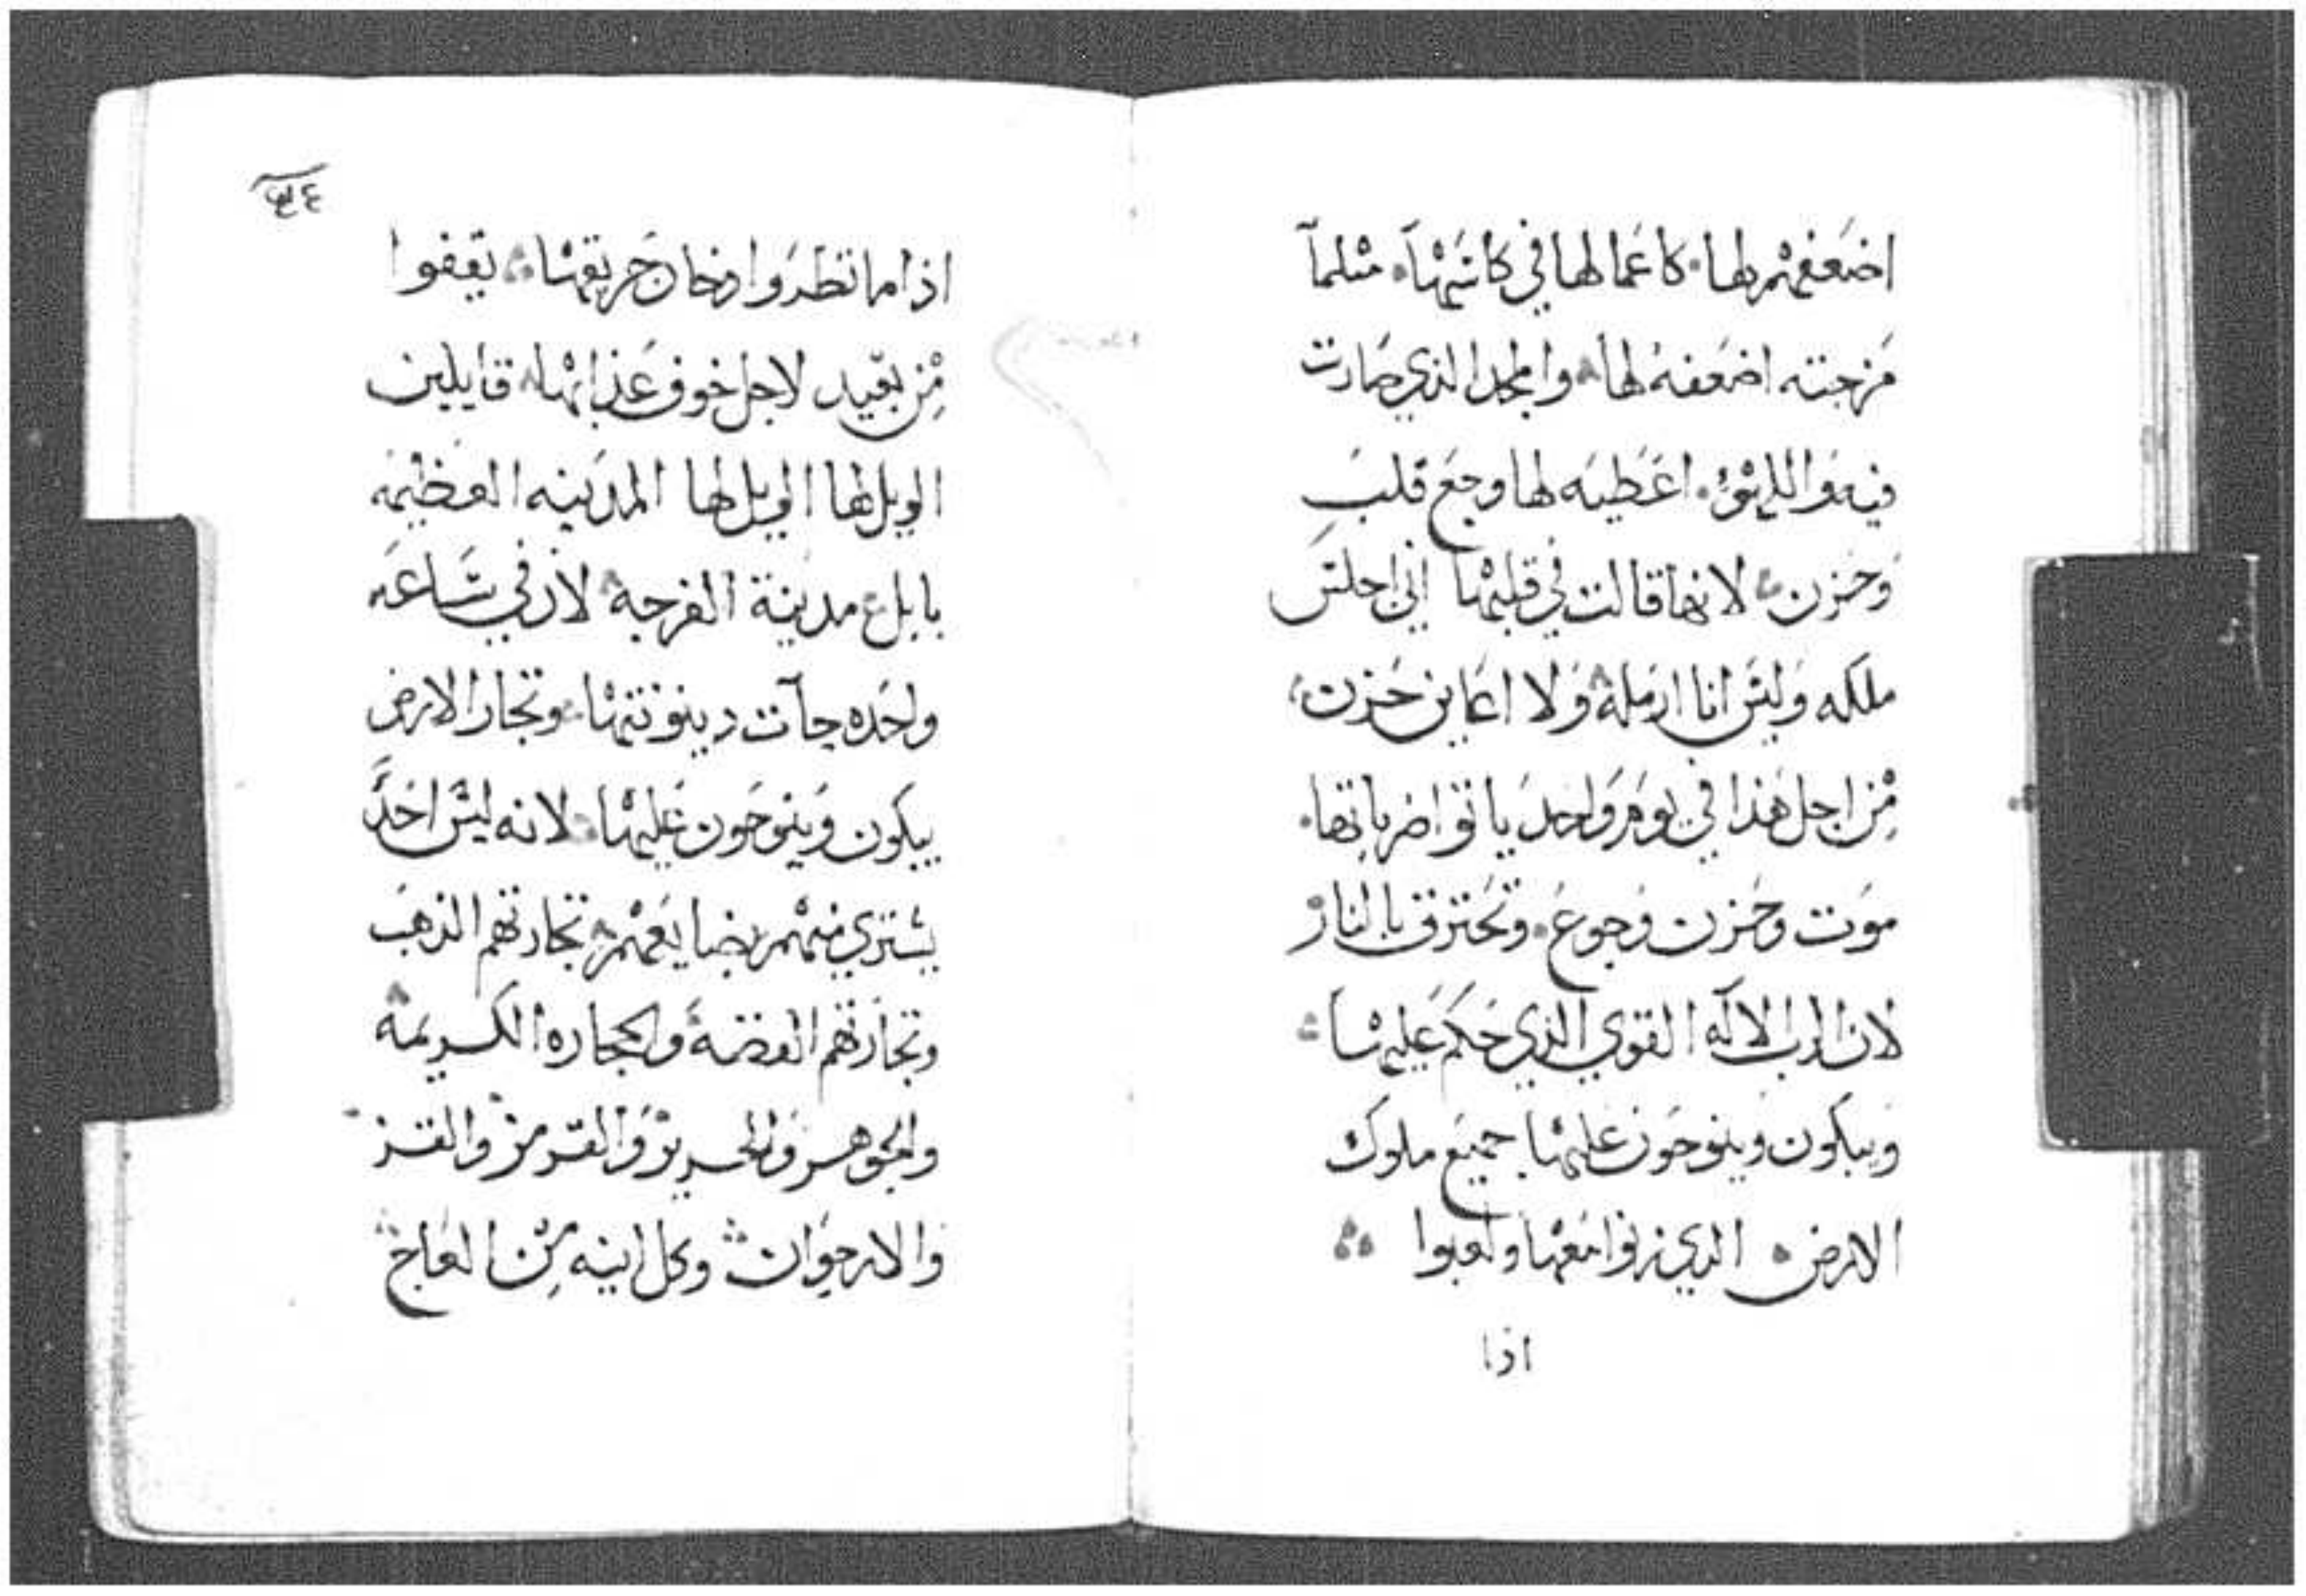 اضعفهم لها. كاعمالها في كاسها. مثلما
مزجته اضعفه لها والمجد الذي صارت
فيه واللهو. اعطيه لها وجع قلب
وحزن لانها قالت في قلبها اني اجلس
ملكه وليس انا ارملة ولا اعاين حزن
من اجل هذا في يوم واحد ياتو اضرباتها.
موت وحزن وجوع. وتحترق بالنار
لان الرب الاله القوي الذي حكم عليها
ويبكون وينوحون عليها جميع ملوك
الارض الذي زنوا معها ولعبوا
اذا
اذا ما نظروا دخان حريقها يقفوا
من بعيد لاجل خوف عذابها قايلين
الويل لها الويل لها المدينه العظيمه
بابل مدينة الفرجة لان في ساعه
واحده جات دينونتها وتجار الارض
يبكون وينوحون عليها لانه ليس احد
يشتري منهم بضايعهم تجارتهم الذهب
وتجارتهم الفضة والحجاره الكريمه
والجوهر والحرير والقرمز والقز
والارجوان وكل انيه من العاج